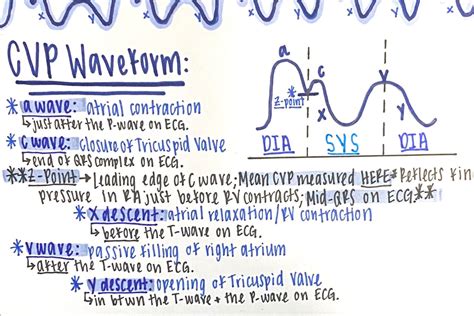 CVP Waveform:
* a wave: atrial contraction
↳ just after the P-wave on ECG.
* c wave: closure of Tricuspid Valve
↳ end of QRS complex on ECG.
**Z-Point → Leading edge of C wave; Mean CVP measured HERE* Reflects
pressure in RA just before RV contracts; Mid-QRS on ECG**
* x descent: atrial relaxation/RV contraction
↳ before the T-wave on ECG.
* v wave: passive filling of right atrium
↳ after the T-wave on ECG.
* y descent: opening of Tricuspid Valve
↳ in btwn the T-wave + the P-wave on ECG.
a
c
v
Z-point
x
y
DIA
SYS
DIA
x
y
x